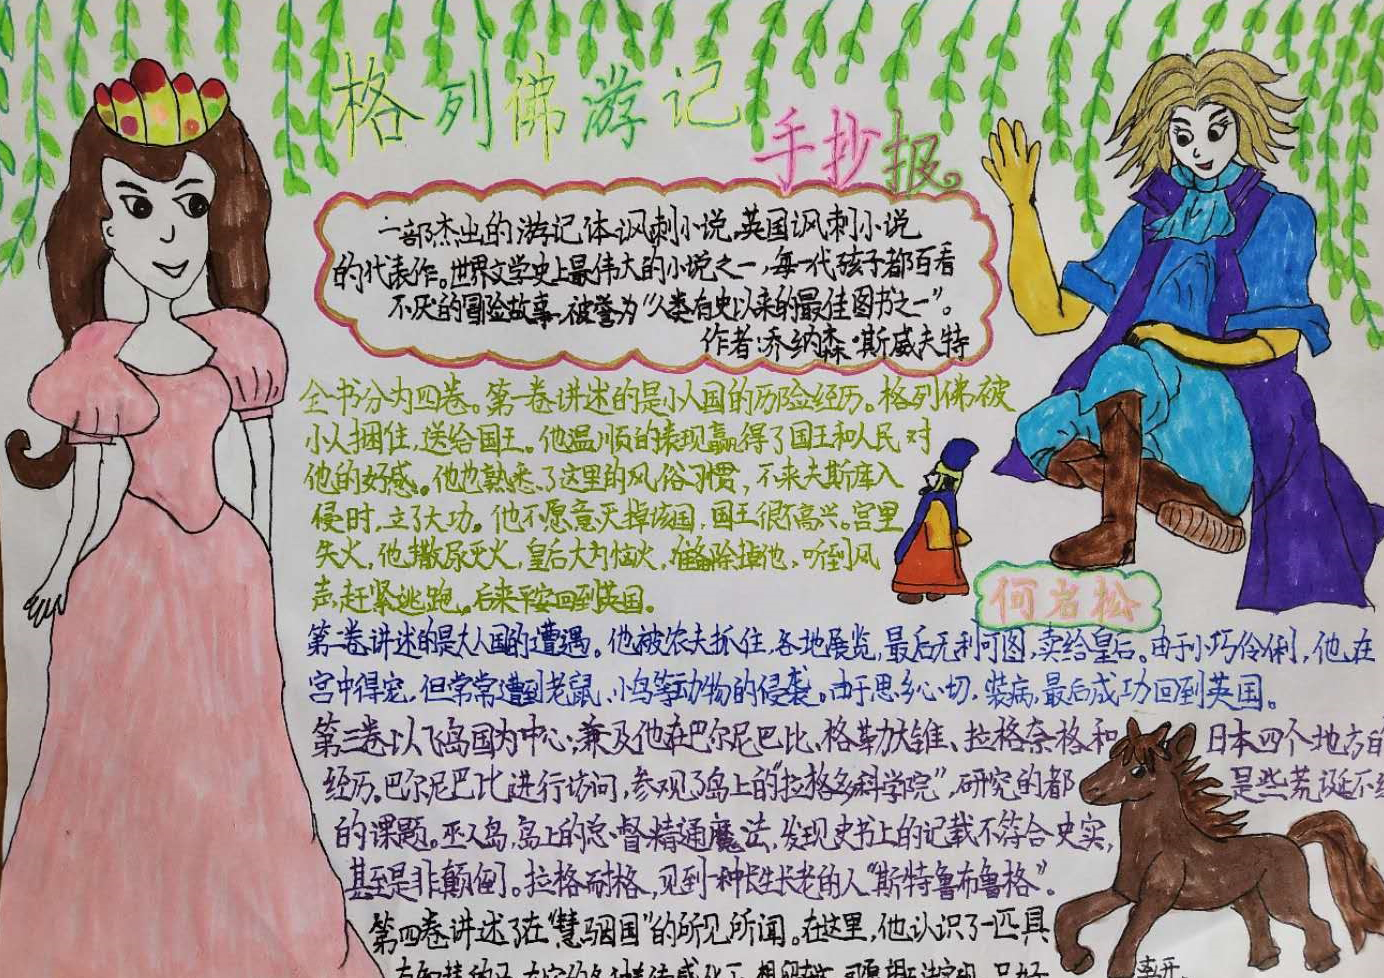 格列佛游记
手抄报
一部杰出的游记体讽刺小说,英国讽刺小说
的代表作。世界文学史上最伟大的小说之一,每一代孩子都百看
不厌的冒险故事,被誉为“人类有史以来的最佳图书之一”。
作者:乔纳森·斯威夫特
全书分为四卷。第一卷讲述的是小人国的历险经历。格列佛被
小人捆住,送给国王。他温顺的表现赢得了国王和人民对
他的好感。他也熟悉了这里的风俗习惯,不来夫斯库入
侵时,立了大功。他不愿意灭掉该国,国王很不高兴。宫里
失火,他撒尿灭火,皇后大为恼火,准备除掉他,听到风
声,赶紧逃跑。后来平安回到英国。
何岩松
第二卷讲述的是大人国的遭遇。他被农夫抓住,各地展览,最后无利可图,卖给皇后。由于小巧伶俐,他在
宫中得宠,但常常遭到老鼠、小鸟等动物的侵袭。由于思乡心切,装病,最后成功回到英国。
第三卷以飞岛国为中心,兼及他在巴尔尼巴比、格勒大锥、拉格奈格和日本四个地方的
经历。巴尔尼巴比进行访问,参观了岛上的“拉格多科学院”,研究的都是些荒诞不经
的课题。巫人岛,岛上的总督精通魔法,发现史书上的记载不符合史实,
甚至是非颠倒。拉格耐格,见到一种长生长老的人“斯特鲁布鲁格”。
第四卷讲述了在“慧骃国”的所见所闻。在这里,他认识了一匹具
离开